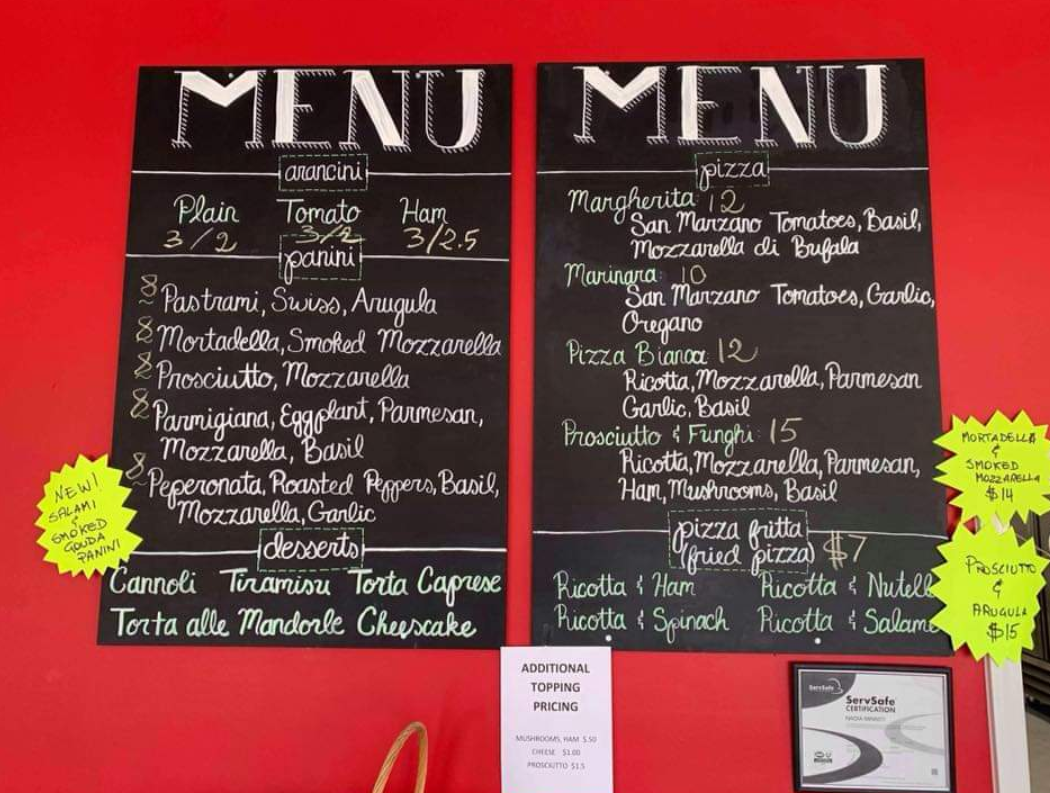 MENU
arancini
Plain Tomato Ham
3/2 3/2 3/2.5
panini
8 Pastrami, Swiss, Arugula
8 Mortadella, Smoked Mozzarella
8 Prosciutto, Mozzarella
8 Parmigiana, Eggplant, Parmesan,
Mozzarella, Basil
8 Peperonata, Roasted Peppers, Basil,
Mozzarella, Garlic
desserts
Cannoli Tiramisu Torta Caprese
Torta alle Mandorle Cheescake
NEW!
SALAMI
&
SMOKED
GOUDA
PANINI
MENU
pizza
Margherita: 12
San Marzano Tomatoes, Basil,
Mozzarella di Bufala
Marinara: 10
San Marzano Tomatoes, Garlic,
Oregano
Pizza Bianca: 12
Ricotta, Mozzarella, Parmesan
Garlic, Basil
Prosciutto & Funghi: 15
Ricotta, Mozzarella, Parmesan,
Ham, Mushrooms, Basil
pizza fritta
(fried pizza) $7
Ricotta & Ham Ricotta & Nutell
Ricotta & Spinach Ricotta & Salame
MORTADELLA
&
SMOKED
MOZZARELLA
$14
PROSCIUTTO
&
ARUGULA
$15
ADDITIONAL
TOPPING
PRICING
MUSHROOMS, HAM $.50
CHEESE $1.00
PROSCIUTTO $1.5
ServSafe
ServSafe
CERTIFICATION